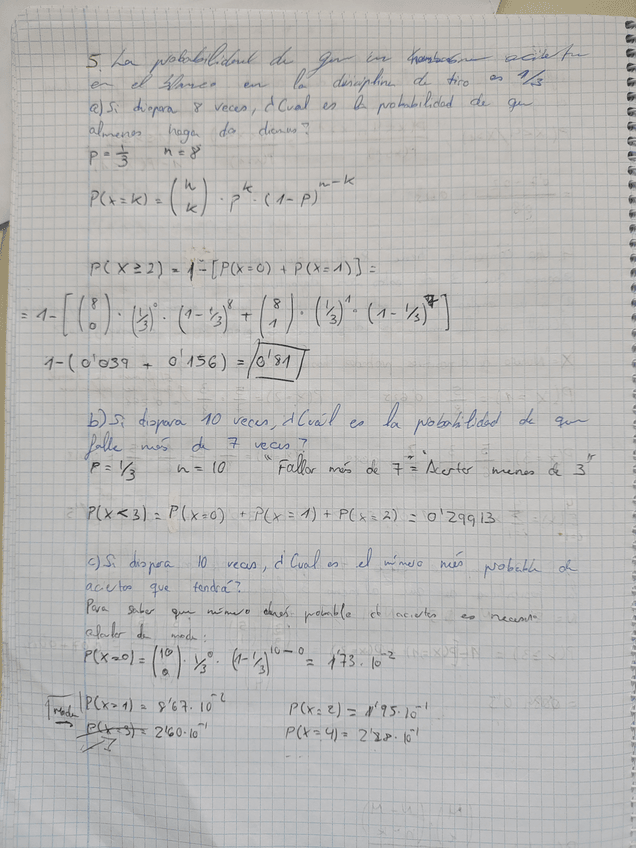 5. La probabilidad de que un acierte
en el blanco en la disciplina de tiro es 1/3
a) Si dispara 8 veces, ¿Cual es la probabilidad de que
almenos haga dos dianas?
p = 1/3 n = 8
P(x=k) = (n k) · p^k · (1-p)^n-k
P(X≥2) = 1-[P(x=0) + P(x=1)] =
= 1-[(8 0) · (1/3)^0 · (1-1/3)^8 + (8 1) · (1/3)^1 · (1-1/3)^7]
1-(0'039 + 0'156) = 0'81
b) Si dispara 10 veces, ¿Cuál es la probabilidad de que
falle más de 7 veces?
p = 1/3 n = 10 "Fallar más de 7" = "Acertar menos de 3"
P(x<3) = P(x=0) + P(x=1) + P(x=2) = 0'29913
c) Si dispara 10 veces, ¿Cual es el número más probable de
aciertos que tendrá?
Para saber que número probable de aciertos es necesario
calcular la moda:
P(x=0) = (10 0) · 1/3^0 · (1-1/3)^10-0 = 1'73 · 10^-2
P(x=1) = 8'67 · 10^-2 P(x=2) = 1'95 · 10^-1
moda → P(x=3) = 2'60 · 10^-1 P(x=4) = 2'28 · 10^-1